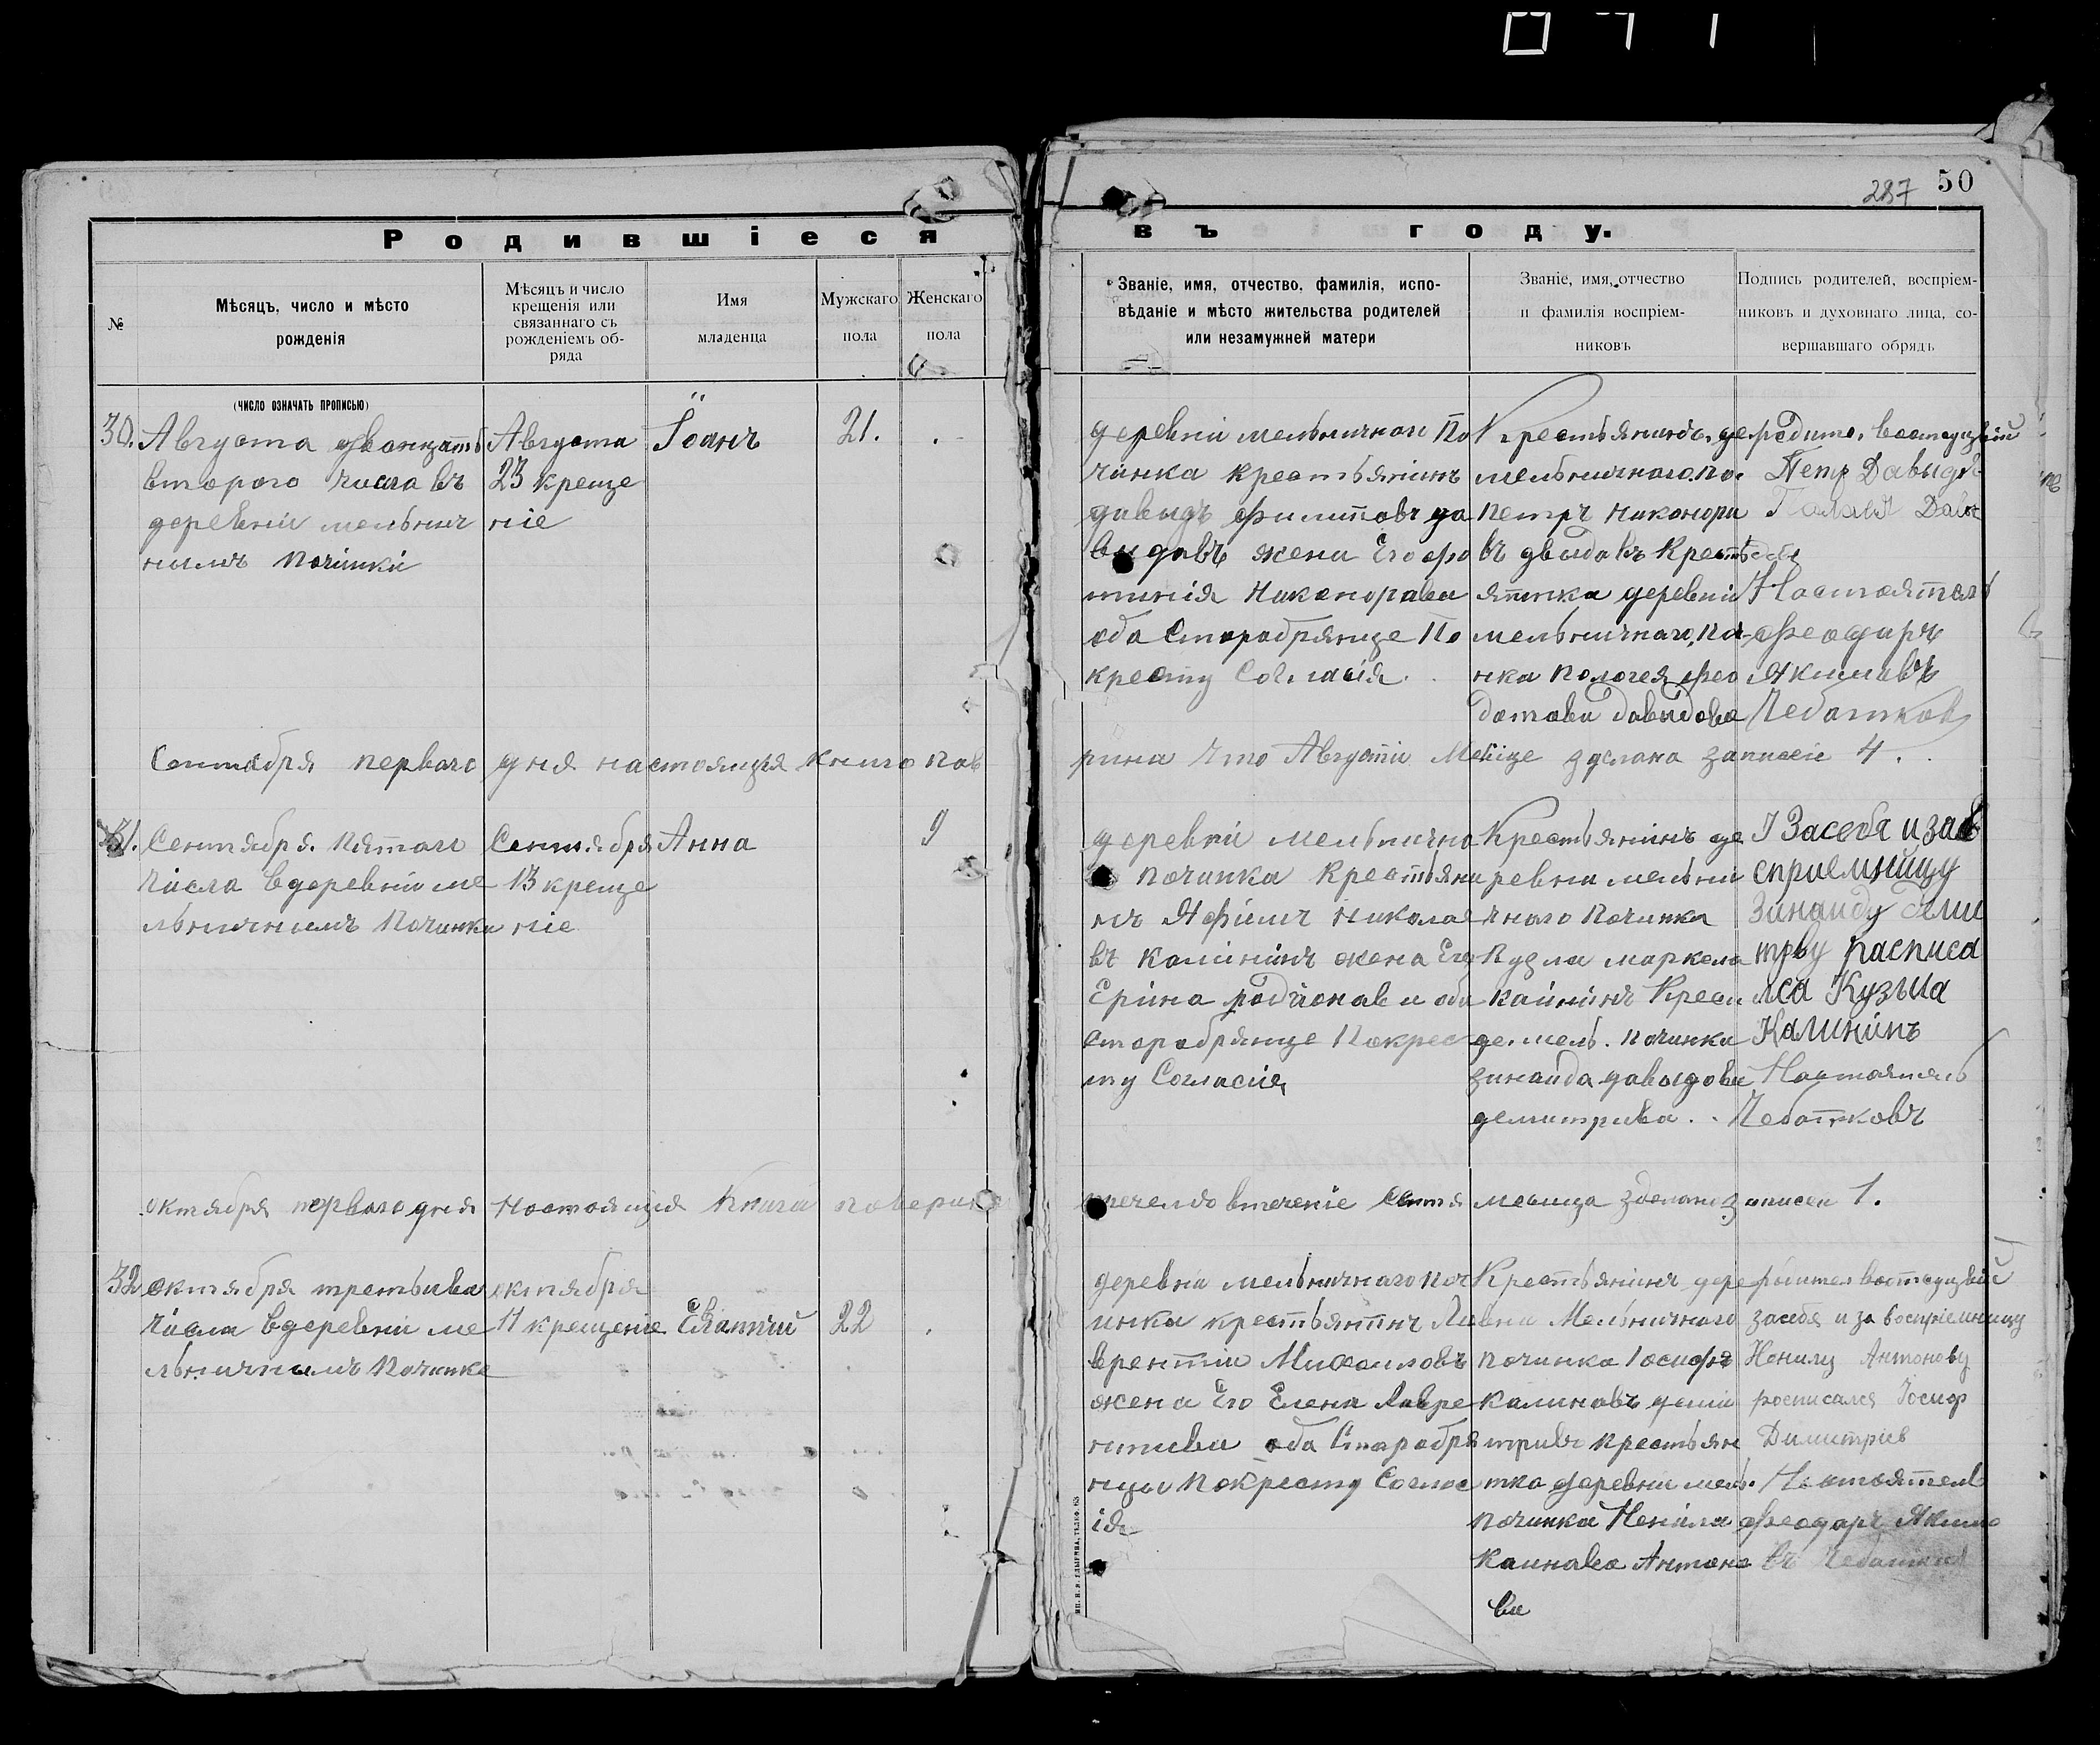 287 50
Родившіеся
въ году.
№
Мѣсяцъ, число и мѣсто
рожденія
Мѣсяцъ и число
крещенія или
связаннаго съ
рожденіемъ об-
ряда
Имя
младенца
Мужскаго
пола
Женскаго
пола
Званіе, имя, отчество, фамилія, испо-
вѣданіе и мѣсто жительства родителей
или незамужней матери
Званіе, имя, отчество
и фамилія воспріем-
никовъ
Подпись родителей, воспріем-
никовъ и духовнаго лица, со-
вершавшаго обрядъ
(число означать прописью)
30.
Августа двонцать
второго числа въ
деревніи мельнич
нымъ Починки
Августа
23 креще
ніе
Іоанъ
21.
деревніи мельничнои По
чинка крестьянинъ
давыдъ филиповъ да
выдовъ жена Его фо
тинія Никонорава
оба Старобрянце По
кресту Согласія
Крестьянинъ де
мельничного по.
петръ никонори
въ двыдовъ Кресть
янинка деревніи
мельничнаго, по
нка Пологея фео
дотова давыдова
родите, востедций
Петр Давыдв
Настоятель
феодаръ
Якимавъ
Чебатков
Сентября перваго дня настоящія книга пов
рина что Августи Месіце зделана записеи 4.
31.
Сентября. пятаго
числа вдеревніи ме
льничнымъ Починки
Сентября
13 креще
ніе
Анна
9
деревни мельнично
починка Крестьяни
нъ Яфимъ Николае
въ Калининъ жена Его
Ерина родионав и оба
старобрянце Покрес
ту Согласия
Крестьянинъ де
ревни мельни
чнаго Починка
Кузма маркела
калининъ Крес
де. мель. починка
зинаида давыдова
демитрива.
І Засебя изав
сприемницу
Зинаиду деми
трву расписа
лса Кузьма
Калининъ
Настоятель
Чебатковъ
октября перваго дня настоящія Книга поверин
втечение Сентя месица зделано записеи 1.
32
октября третьива
числа вдеревніи ме
льничнымъ Починке
октября
11 крещеніе
Евлампий
22
деревни мельничнаго поч
инка крестьянинъ Ла
врентіи Михаиловъ
жена Его Елена Лавре
нтиева оба Старобря
нцы Покресту Соглас
ія
Крестьянинъ дере
вни Мельничнаго
починка Іосифъ
калиновъ дими
тривъ крестьян
тка деревни мель.
починка Ненила
Каинава Антоно
ва
родител востедций
засебя и за восприемницу
Ненилу Антонову
росписался Іосиф
Димитрев
Настоятель
феодаръ Якимо
въ Чебатков